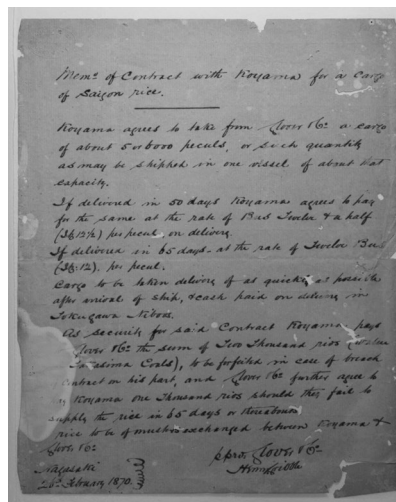 Memo. of Contract with Koyama for a Cargo
of Saigon rice.
Koyama agrees to take from Glover & Co. a cargo
of about 5 or 6000 peculs, or such quantity
as may be shipped in one vessel of about that
capacity.
If delivered in 50 days Koyama agrees to pay
for the same at the rate of Bus Twelve & a half
(12½) per pecul, on delivery.
If delivered in 65 days - at the rate of Twelve Bus
(12) per pecul.
Cargo to be taken delivery of as quickly as possible
after arrival of ship, & cash paid on delivery in
Tokugawa Niboos.
As security for said Contract Koyama pays
Glover & Co. the sum of Two Thousand rios
Takasima Coals), to be forfeited in case of breach
contract on his part, and Glover & Co. further agree to
Koyama one Thousand rios should they fail to
supply the rice in 65 days or thereabouts
rice to be of exchanged between Koyama &
Glover & Co.
ppro. Glover & Co.
Nagasaki
February 1870.